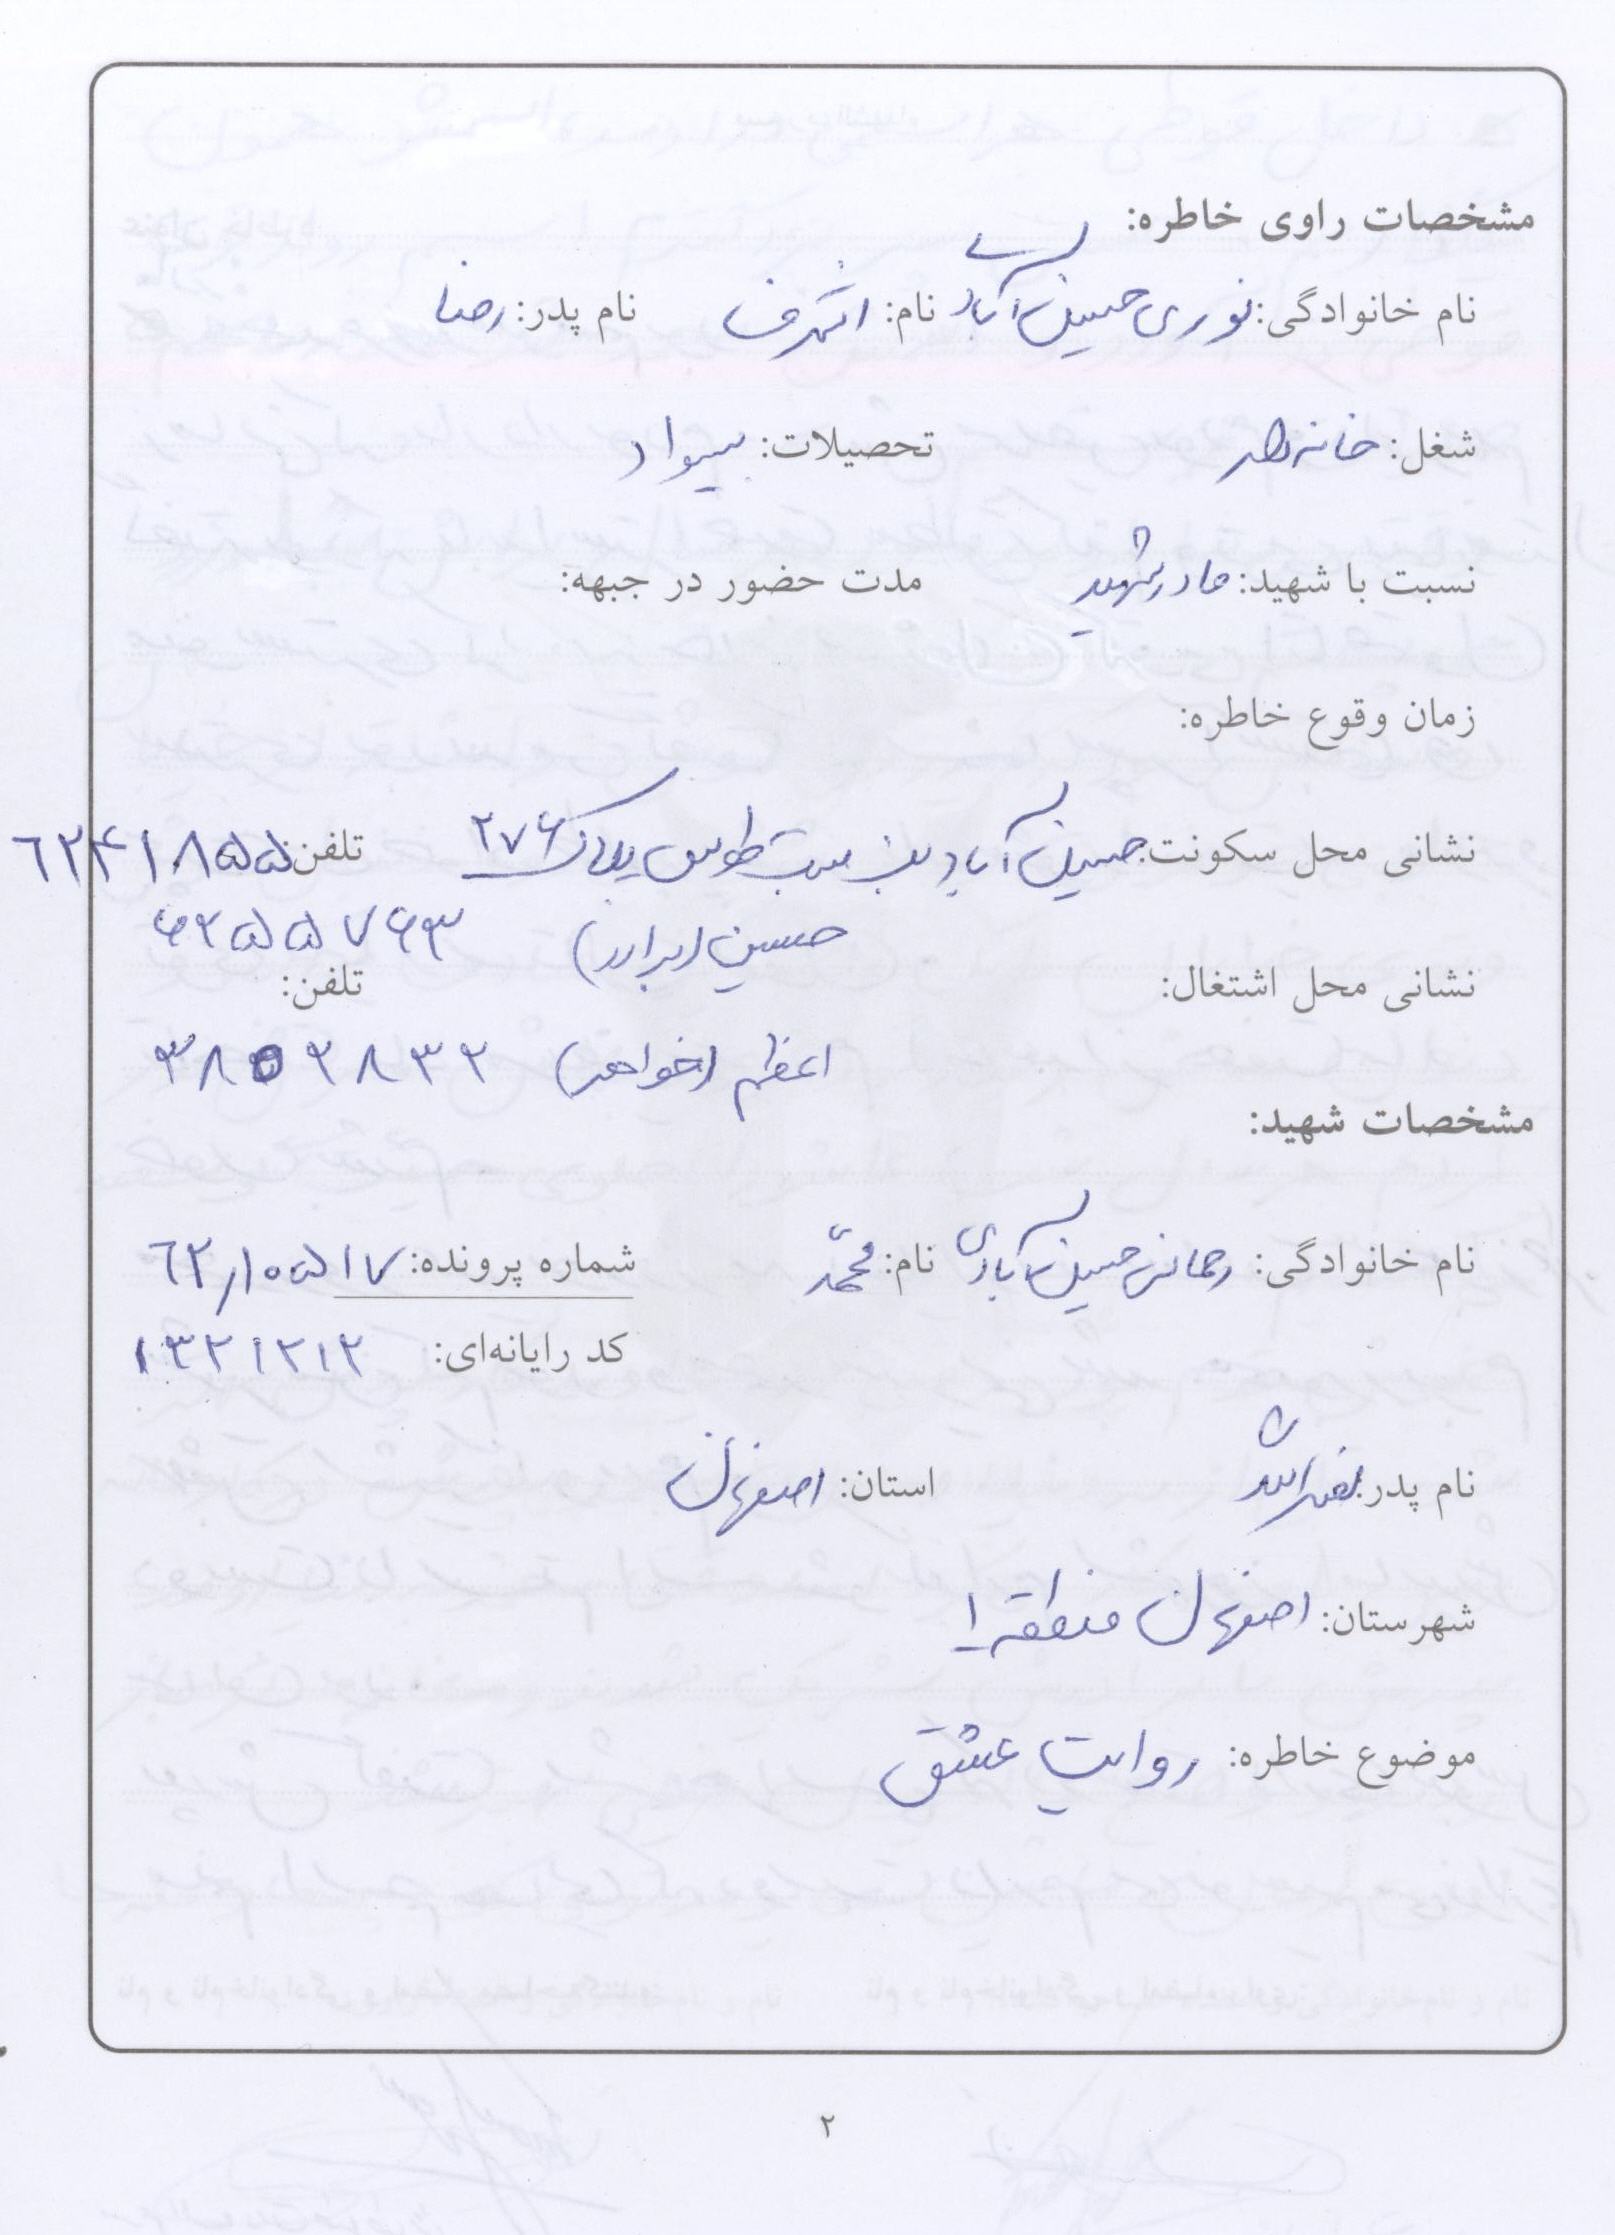 مشخصات راوی خاطره:
نام خانوادگی: نوری حسین آبادی نام: اشرف نام پدر: رضا
شغل: خانه دار تحصیلات: بیسواد
نسبت با شهید: مادر شهید مدت حضور در جبهه:
زمان وقوع خاطره:
نشانی محل سکونت: حسین آباد بن بست طوس پلاک ۲۷۶ تلفن: ۶۲۴۱۸۵۵
حسین (برادر) ۶۲۵۵۷۶۳
نشانی محل اشتغال: تلفن:
اعظم (خواهر) ۳۸۵۲۸۳۲
مشخصات شهید:
نام خانوادگی: رحمانی حسین آبادی نام: محمّد شماره پرونده: ۶۲٫۱۰۵۱۷
کد رایانه‌ای: ۱۳۲۱۲۱۲
نام پدر: استان: اصفهان
شهرستان: اصفهان منطقه ۱
موضوع خاطره: روایت عشق
۲